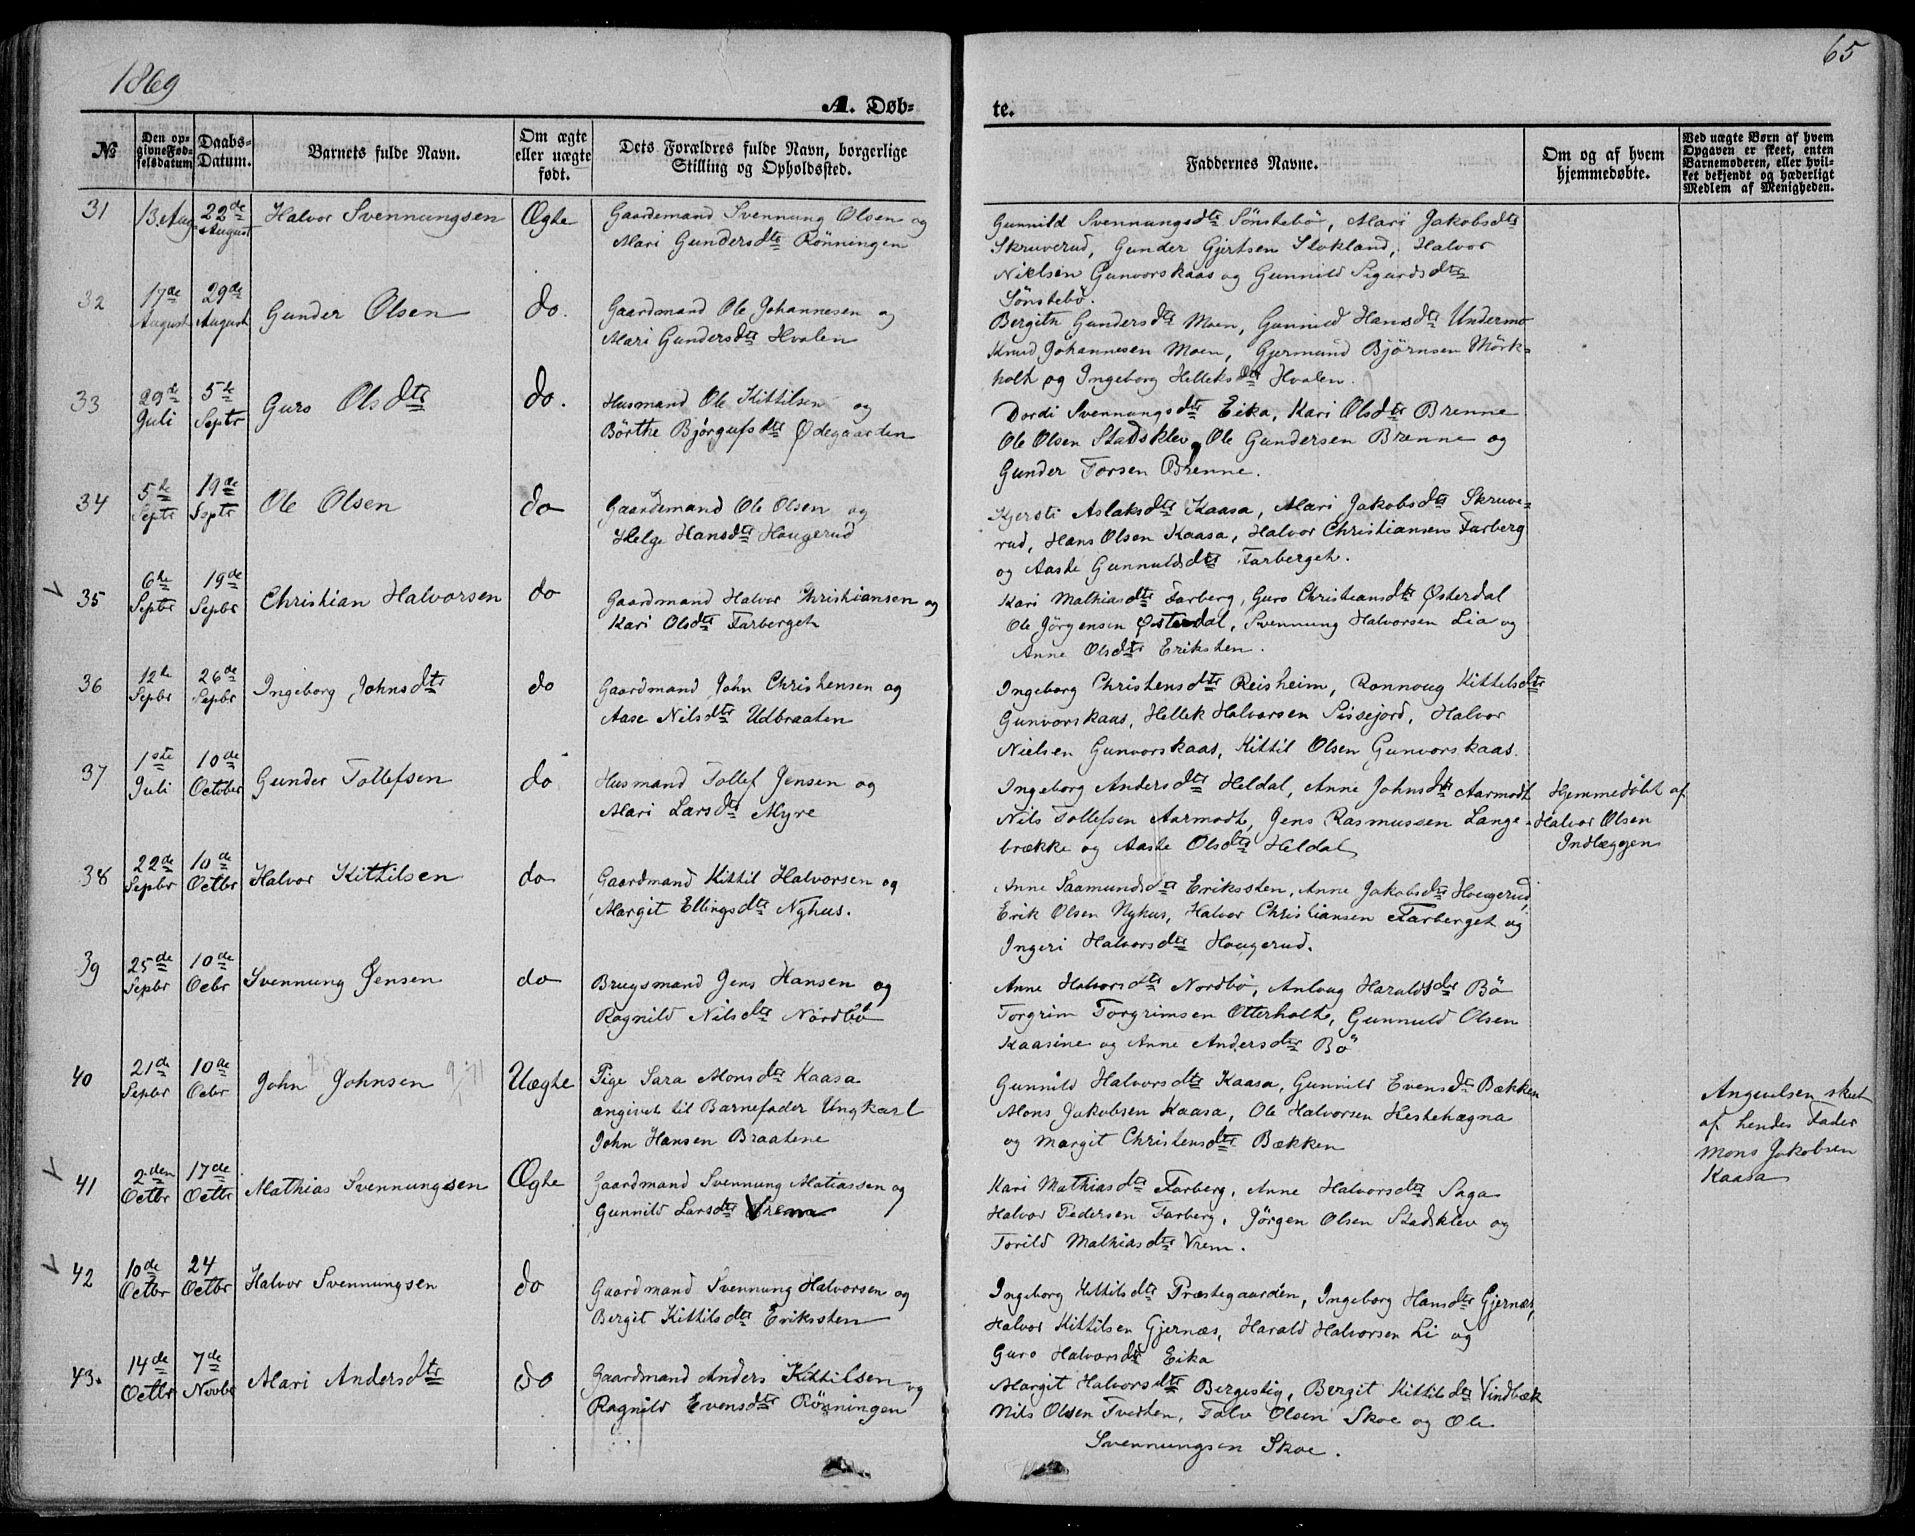 1869
65
A. Døb-
te.
No
Den op-
givne Fød-
selsdatum
Daabs-
Datum.
Barnets fulde Navn.
Om ægte
eller uægte
født.
Dets Forældres fulde Navn, borgerlige
Stilling og Opholdssted.
Faddernes Navne.
Om og af hvem
hjemmedøbte.
Ved uægte Børn af hvem
Opgaven er skeet, enten
Barnemoderen, eller hvil-
ket bekjendt og hæderligt
Medlem af Menigheden.
31
13. Aug
22de
August
Halvor Svennungsen
Ægte
Gaardemand Svennung Olsen og
Mari Gundersdtr Rönningen
Gunnild Svennungsdtr Sönstebö, Mari Jakobsdtr
Skruverud, Gunder Gjertsen Stokland, Halvor
Nielsen Gunvorskaas og Gunnild Sigurdsdtr
Sönstebö.
32
17de
August
29de
August
Gunder Olsen
do.
Gaardmand Ole Johannesen og
Mari Gundersdtr Hvalen
Bergith Gundersdtr Moen, Gunnild Hansdtr Undermo
Knud Johannesen Moen, Gjermund Björnsen Mörk-
holt og Ingeborg Helleksdtr Hvalen.
33
29de
Juli
5te
Septr
Guro Olsdtr
do.
Husmand Ole Kittilsen og
Börthe Björgufsdtr Ødegaarden
Dordi Svennungsdtr Eika, Kari Olsdtr Brenne
Ole Olsen Stadsklev, Ole Gundersen Brenne og
Gunder Torsen Brenne.
34
5te
Septr
19de
Septr
Ole Olsen
do
Gaardemand Ole Olsen og
Helge Hansdtr Hougerud
Kjersti Aslaksdtr Kaasa, Mari Jakobsdtr Skruve-
rud, Hans Olsen Kaasa, Halvor Christiansen Farberg
og Aaste Gunnuldsdtr Farberget.
35
6te
Sepbr
19de
Sepbr
Christian Halvorsen
do
Gaardmand Halvor Christiansen og
Kari Olsdtr Farberget
Kari Mathiasdtr Farberg, Guro Christiansdtr Østerdal
Ole Jörgensen Østerdal, Svennung Halvorsen Lia og
Anne Olsdtr Eriksten.
36
12te
Sepbr
26de
Sepbr
Ingeborg Johnsdtr
do
Gaardmand John Christensen og
Aase Nilsdtr Udbraaten
Ingeborg Christensdtr Reisheim, Ronnoug Kittelsdtr
Gunvorskaas, Hellek Halvorsen Sissejord, Halvor
Nielsen Gunvorskaas, Kittil Olsen Gunvorskaas.
37
1ste
Juli
10de
October
Gunder Tollefsen
do
Husmand Tollef Jensen og
Mari Larsdtr Myre
Ingeborg Andersdtr Heldal, Anne Johnsdtr Aarmodt
Nils Tollefsen Aarmodt, Jens Rasmussen Lange-
brække og Aaste Olsdtr Heldal
Hjemmedöbt af
Halvor Olsen
Indlæggen
38
22de
Sepbr
10de
Octbr
Halvor Kittilsen
do
Gaardmand Kittil Halvorsen og
Margit Ellingsdtr Nyhus.
Anne Saamundsdtr Eriksten, Anne Jakobsdtr Hougerud,
Erik Olsen Nyhus, Halvor Christiansen Farberget og
Ingeri Halvorsdtr Hougerud.
39
25de
Sepbr
10de
Ocbr
Svennung Jensen
do
Brugsmand Jens Hansen og
Ragnild Nilsdtr Nordbö
Anne Halvorsdtr Nordbö, Anloug Haraldsdtr Bö
Torgrim Torgrimsen Otterholt, Gunnuld Olsen
Kaasine og Anne Andersdtr Bö
40
21de
Sepbr
10de
Ocbr
John Johnsen
Uægte
Pige Sara Monsdtr Kaasa
angivet til Barnefader Ungkarl
John Hansen Braatene
Gunnild Halvorsdtr Kaasa, Gunnild Evensdtr Bækken
Mons Jakobsen Kaasa, Ole Halvorsen Hestehægna
og Margit Christensdtr Bækken
Angivelsen skeet
af hendes Fader
Mons Jakobsen
Kaasa
41
2den
Octbr
17de
Octbr
Mathias Svennungsen
Ægte
Gaardmand Svennung Matiassen og
Gunnild Larsdtr Vrem
Kari Mathiasdtr Farberg, Anne Halvorsdtr Saga
Halvor Pedersen Farberg, Jörgen Olsen Stadsklev og
Torild Mathiasdtr Vrem.
42
10de
Octbr
24
Octbr
Halvor Svennungsen
do
Gaardmand Svennung Halvorsen og
Bergit Kittilsdtr Eriksten
Ingeborg Kittilsdtr Præstegaarden, Ingeborg Hansdtr Gjernæs,
Halvor Kittilsen Gjernæs, Harald Halvorsen Li og
Guro Halvorsdtr Eika
43.
14de
Octbr
7de
Novbr
Mari Andersdtr
do
Gaardmand Anders Kittilsen og
Ragnild Evensdtr Rönningen
Margit Halvorsdtr Bergestig, Bergit Kittilsdtr Vindbæk
Nils Olsen Tvedten, Talv Olsen Skoe og Ole
Svennungsen Skoe.